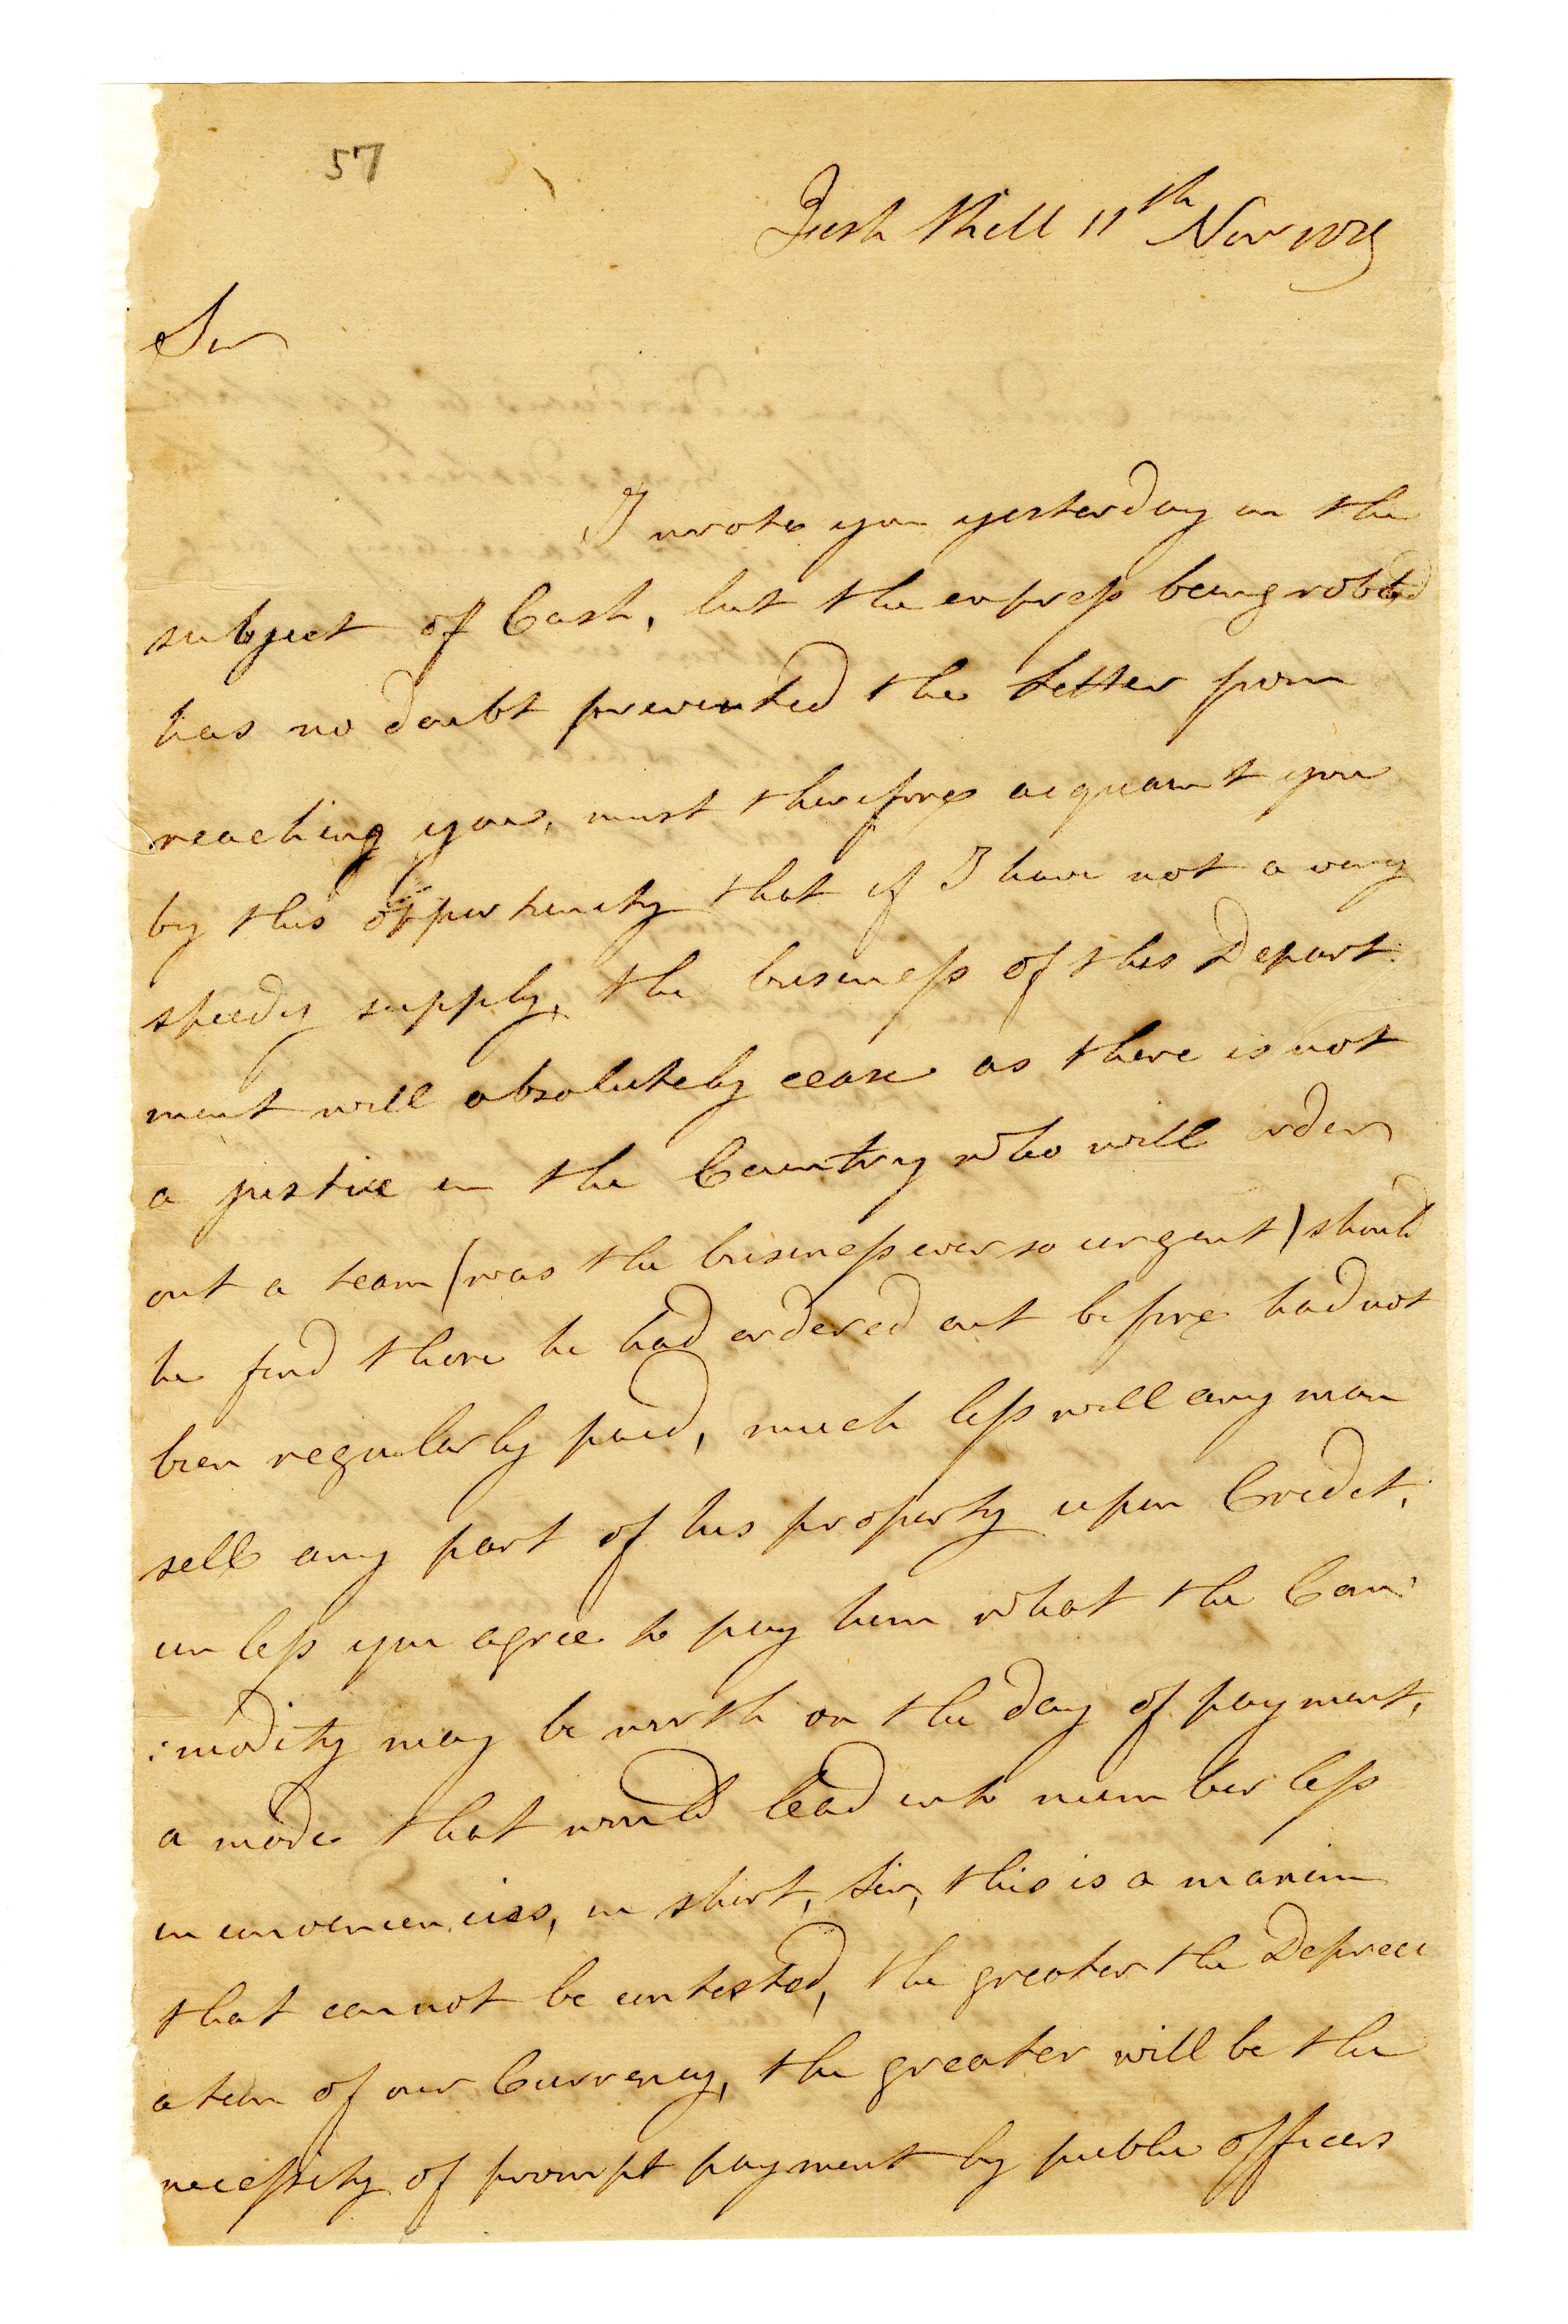 57
Fish Kill 11th Nov 1779
Sir
I wrote you yesterday on the
subject of Cash, but the express being robbed
has no doubt prevented the letter from
reaching you, must therefore acquaint you
by this opportunity that if I have not a very
speedy supply, the business of this Depart:
ment will absolutely cease as there is not
a justice in the Country who will order
out a team (was the business ever so urgent) should
he find those he had ordered out before had not
been regularly paid, much less will any man
sell any part of his property upon Credit,
unless you agree to pay him what the Com:
:modity may be worth on the day of payment,
a mode that would lead into numberless
inconveniencies, in short, Sir, this is a maxim
that cannot be contested, the greater the Depreci
ation of our Currency, the greater will be the
necessity of prompt payment by public officers